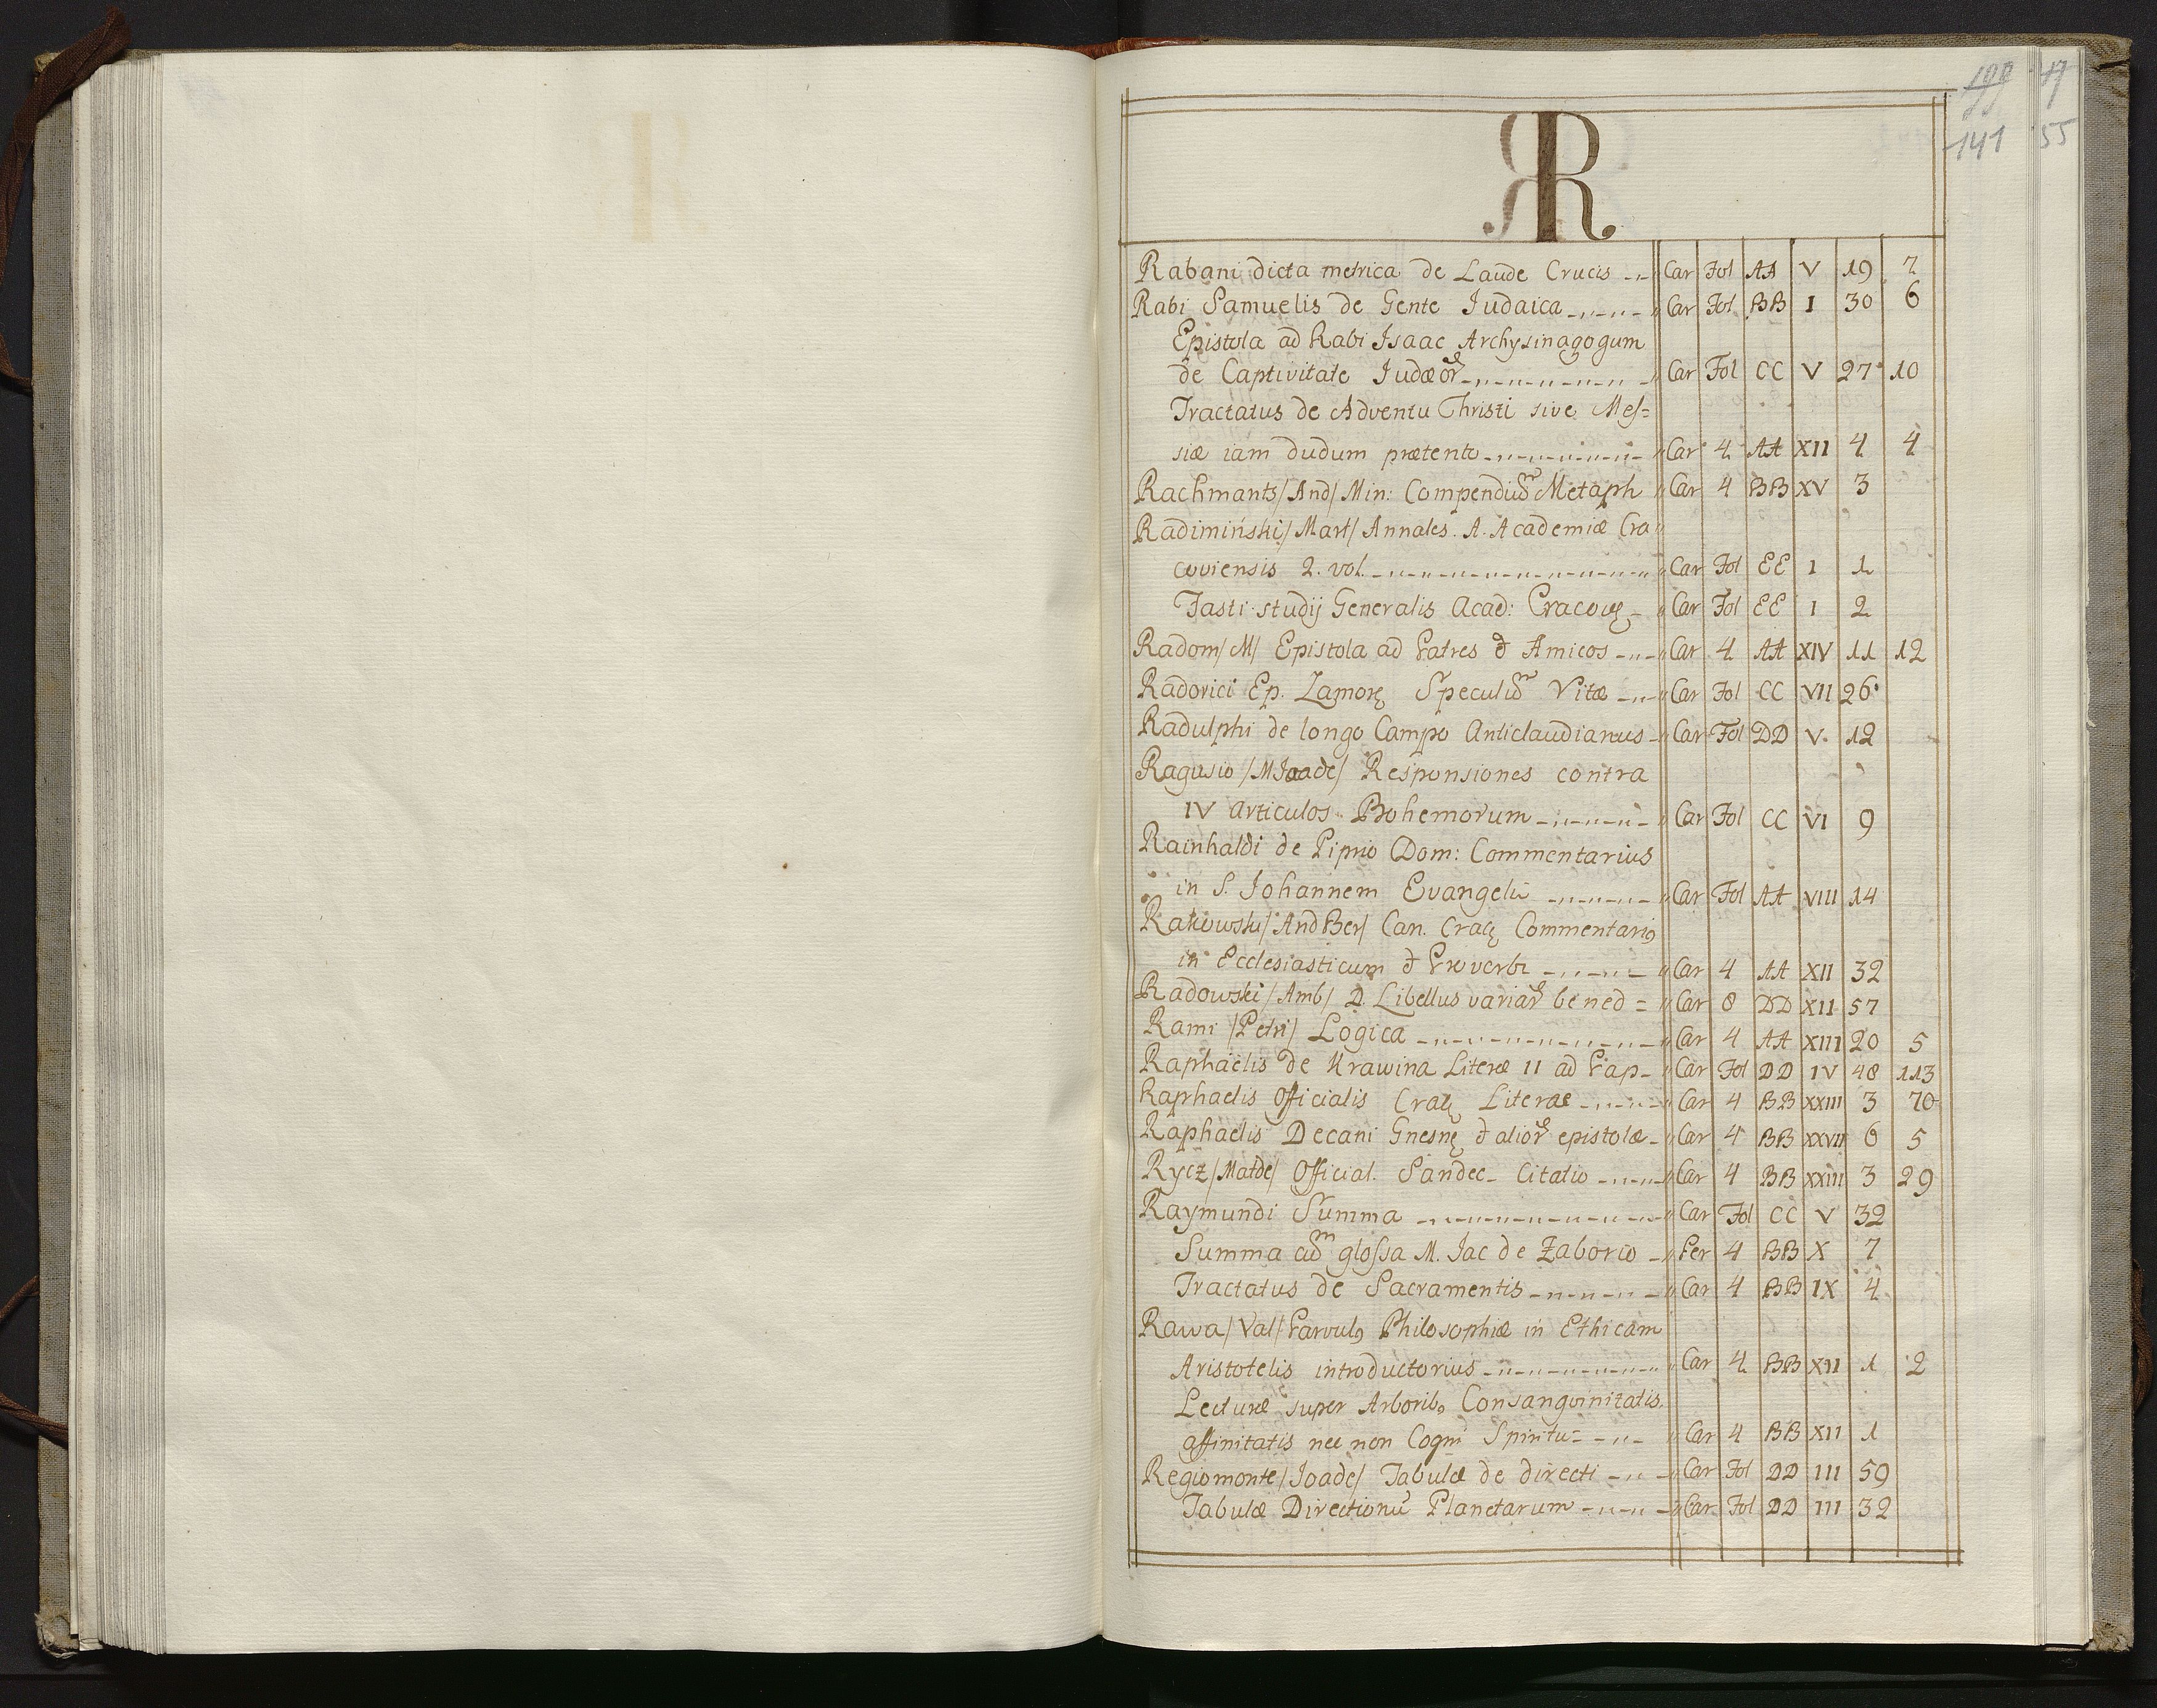 199 47
141 55
R
Rabani dicta metrica de Laude Crucis Car Fol AA V 19 7
Rabi Samuelis de Gente Iudaica Car Fol BB I 30 6
Epistola ad Rabi Isaac Archysinagogum
de Captivitate Iudæor Car Fol CC V 27 10
Tractatus de Adventu Christi sive Mes=
siæ iam dudum prætento Car 4 AA XII 4 4
Rachmants/And/ Min: Compendiu Metaph Car 4 BB XV 3
Radimiński/Mart/ Annales. A. Academiæ Cra
coviensis 2. vol. Car Fol EE I 1
Fasti studij Generalis Acad: Cracovę Car Fol EE I 2
Radom/M/ Epistola ad Patres & Amicos Car 4 AA XIV 11 12
Radorici Ep. Zamorę Speculu Vitæ Car Fol CC VII 26
Radulphi de longo Campo Anticlaudianus Car Fol DD V. 12
Ragusio /M Joade/ Responsiones contra
IV articulos Bohemorum Car Fol CC VI 9
Rainhaldi de Piprio Dom: Commentarius
in S. Iohannem Evangeliū Car Fol AA VIII 14
Rakowski/And Ber/ Can. Cracę Commentari9
in Ecclesiasticum & Proverbi Car 4 AA XII 32
Radowski/Amb/ D. Libellus variar bened = Car 8 DD XII 57
Rami /Petri/ Logica Car 4 AA XIII 20 5
Raphaëlis de Krawina Literæ II ad Pap Car Fol DD IV 48 113
Raphaelis Officialis Cracę Literae Car 4 BB XXIII 3 70
Raphaelis Decani Gnesnę & alior epistolæ Car 4 BB XXVII 6 5
Rycz/Matde/ Official. Sandec. Citatio Car 4 BB XXIII 3 29
Raymundi Summa Car Fol CC V 32
Summa cum glossa M. Jac de Zaborio Per 4 BB X 7
Tractatus de Sacramentis Car 4 BB IX 4
Rawa/Val/ Parvul9 Philosophiæ in Ethicam
Aristotelis introductorius Car 4 BB XII 1 2
Lecturæ super Arborib9 Consangvinitatis
affinitatis nec non Cogni Spiritu Car 4 BB XII 1
Regiomonte/Joade/ Tabulæ de directi Car Fol DD III 59
Tabulæ Directionū Planetarum Car Fol DD III 32